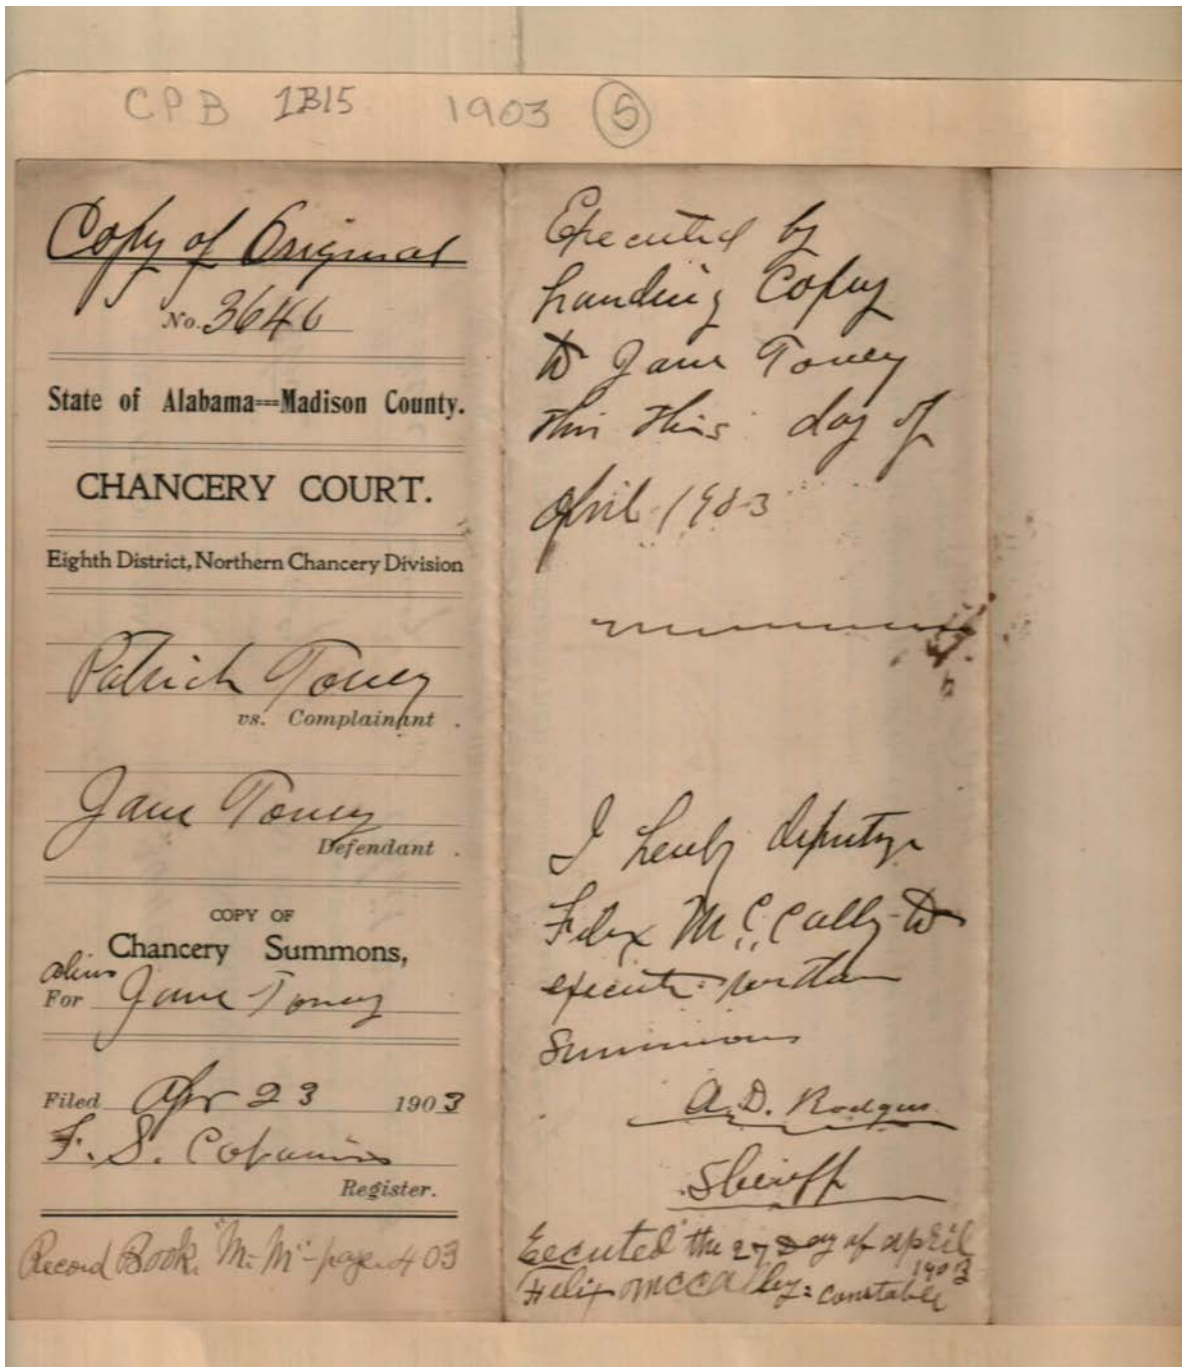 CPB 1B15 1903 5
Copy of Original
No. 3646
State of Alabama--Madison County.
CHANCERY COURT.
Eighth District, Northern Chancery Division
Patrick Toney
vs. Complainant .
Jane Toney
Defendant .
COPY OF
Chancery Summons,
alias
For Jane Toney
Filed Apr 23 1903
F. S.
Register.
Record Book. "M.M" - page 403
Executed by
handing Copy
to Jane Toney
this day of
April 1903
I hereby deputize
Felix McCalley to
execute within
Summons
A. D. Rodgers
Sheriff
Eecuted the 27 Day of april
1903
Felix mccalley: constable